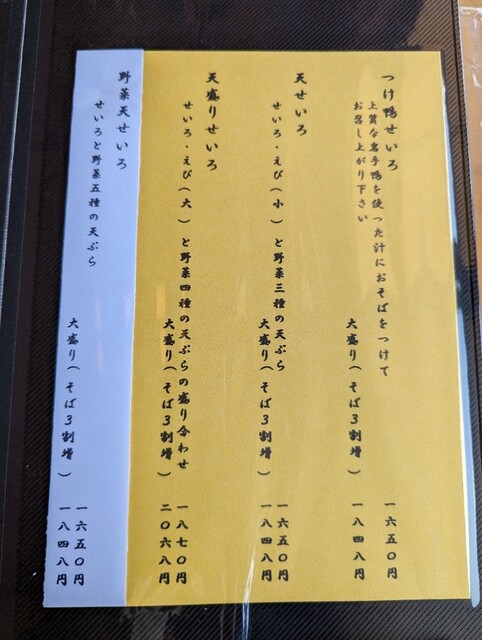 つけ鴨せいろ
上質な岩手鴨を使った汁におそばをつけて
お召し上がり下さい
一六五〇円
大盛り(そば3割増)
一八四八円
天せいろ
せいろ・えび(小)と野菜三種の天ぷら
一六五〇円
大盛り(そば3割増)
一八四八円
天盛りせいろ
せいろ・えび(大)と野菜四種の天ぷらの盛り合わせ
一八七〇円
大盛り(そば3割増)
二〇六八円
野菜天せいろ
せいろと野菜五種の天ぷら
一六五〇円
大盛り(そば3割増)
一八四八円